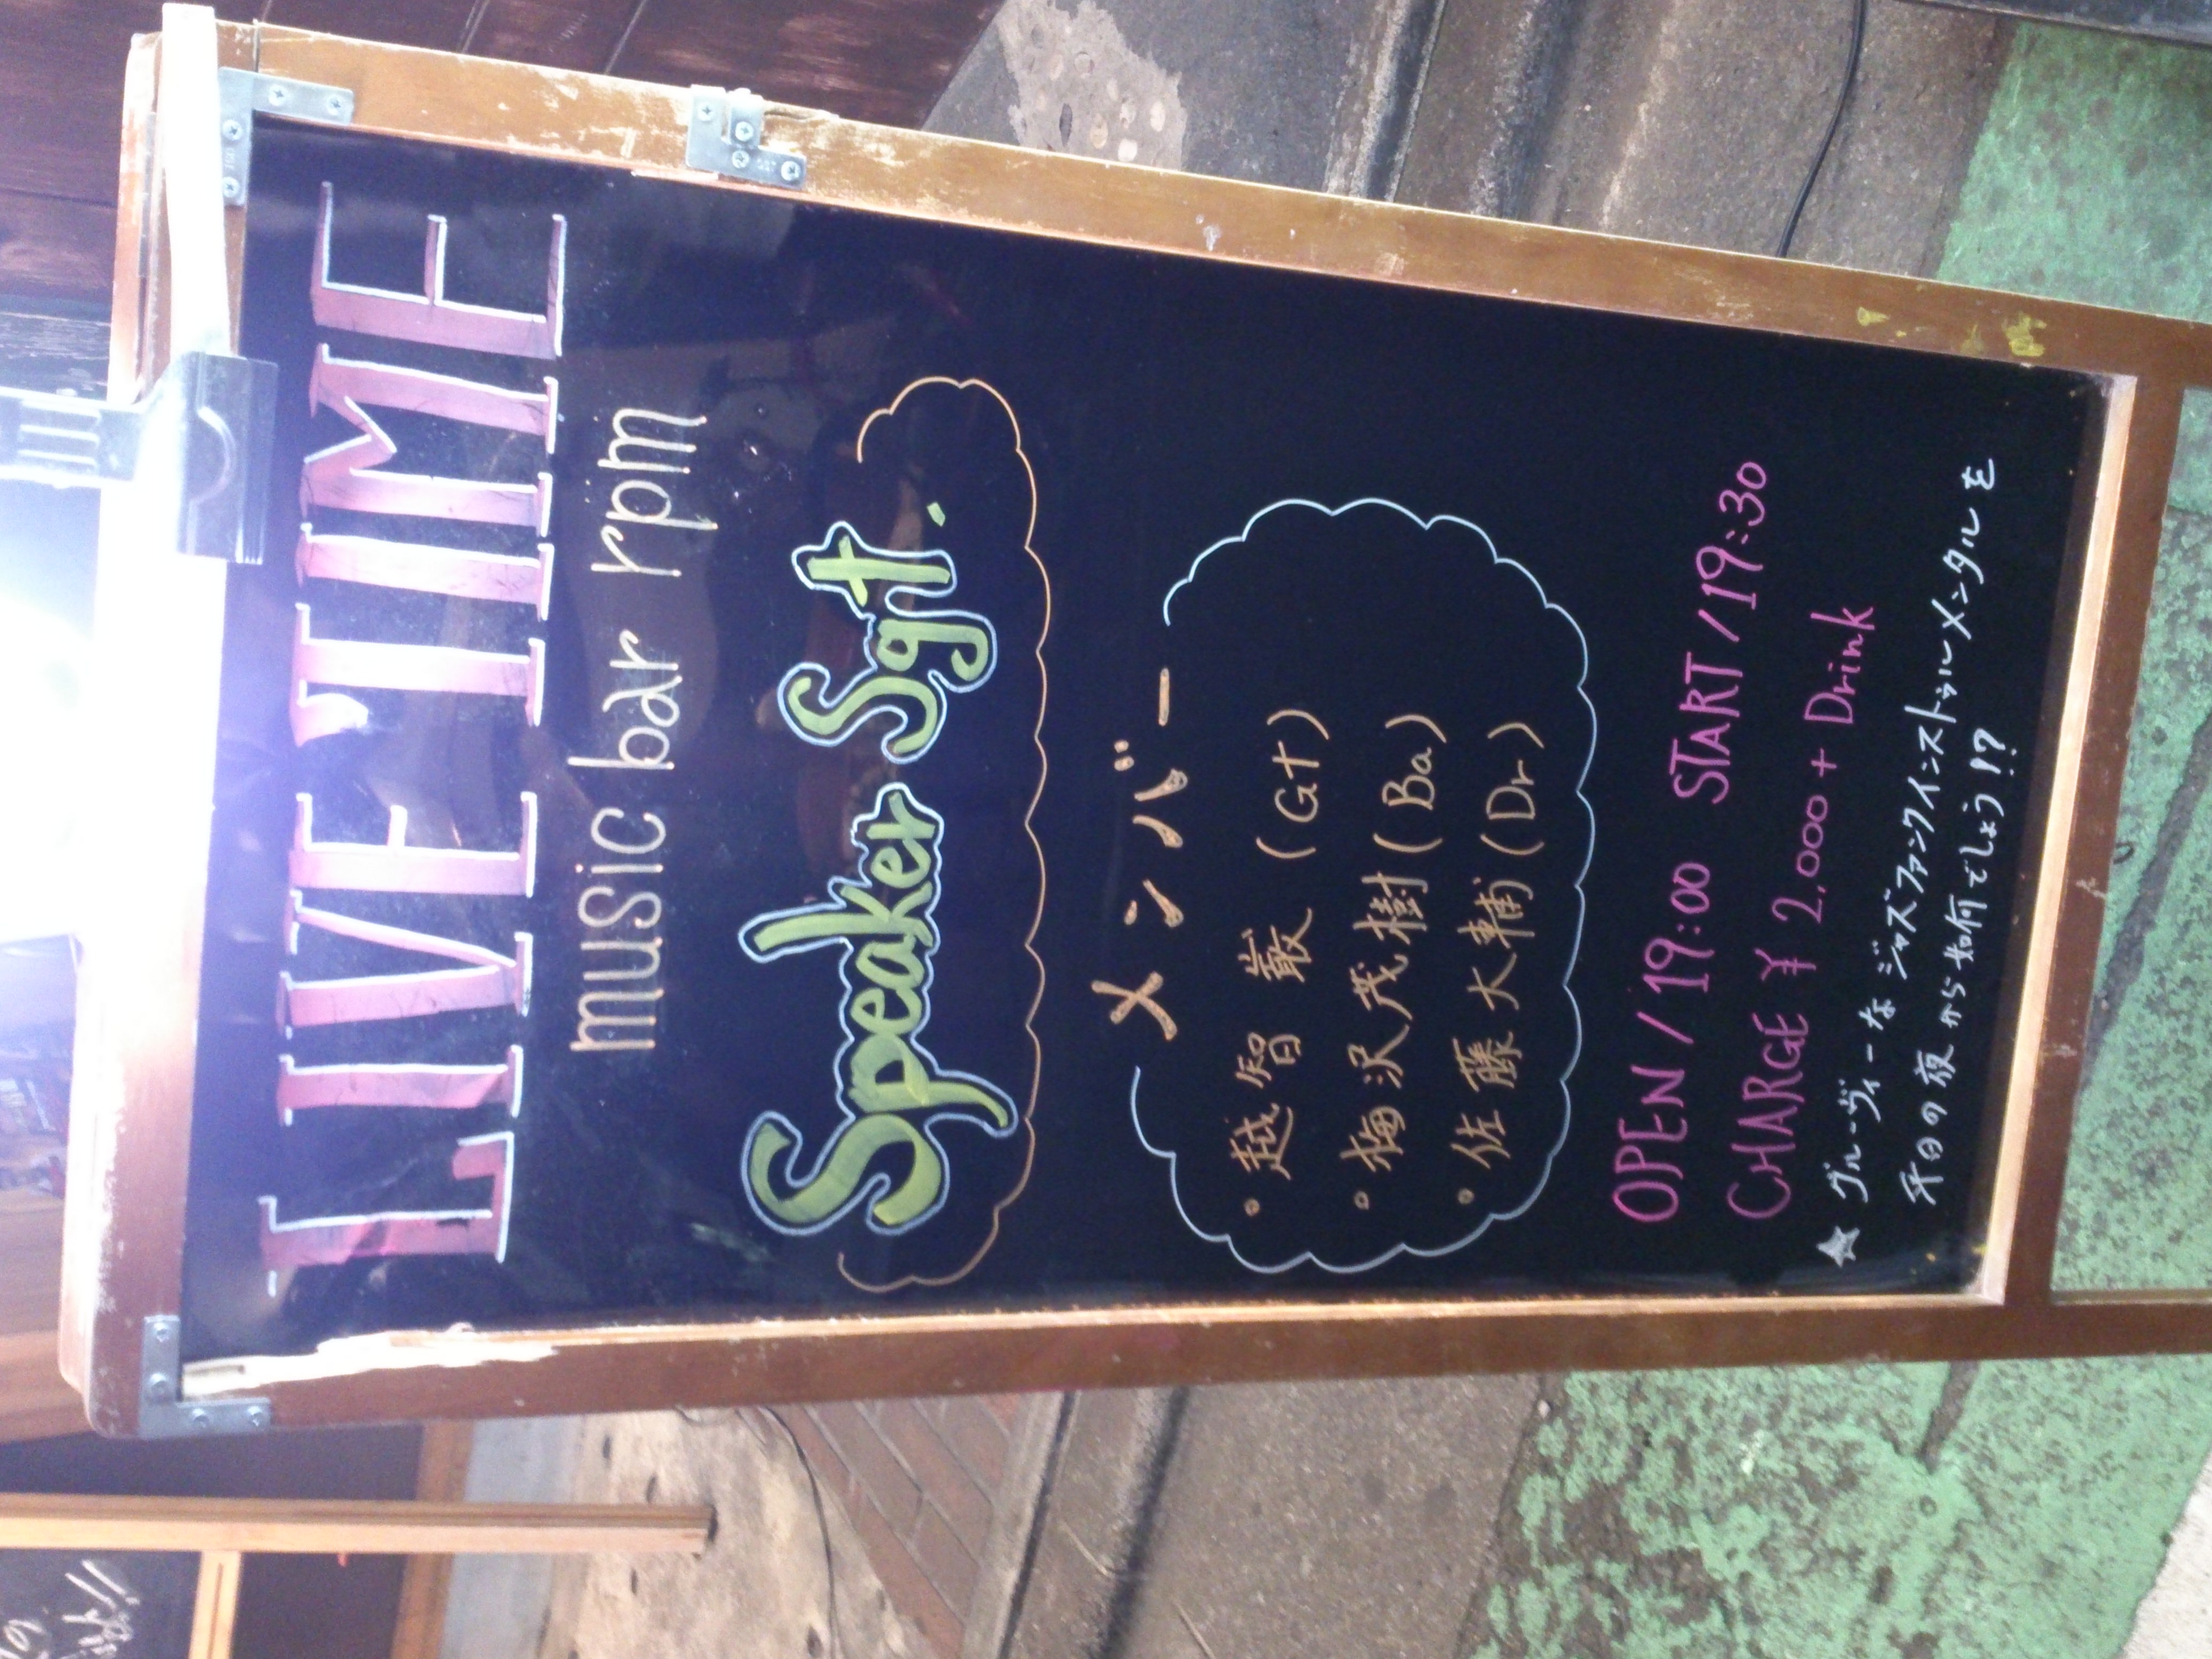 LIVE TIME
music bar rpm
Speaker Sgt.
メンバー
・越智 巌 (Gt)
・梅沢茂樹 (Ba)
・佐藤大輔 (Dr)
OPEN / 19:00 START / 19:30
CHARGE ¥ 2.000 + Drink
★ グルーヴィーなジャズファンクインストゥルメンタルを
平日の夜から如何でしょう!?